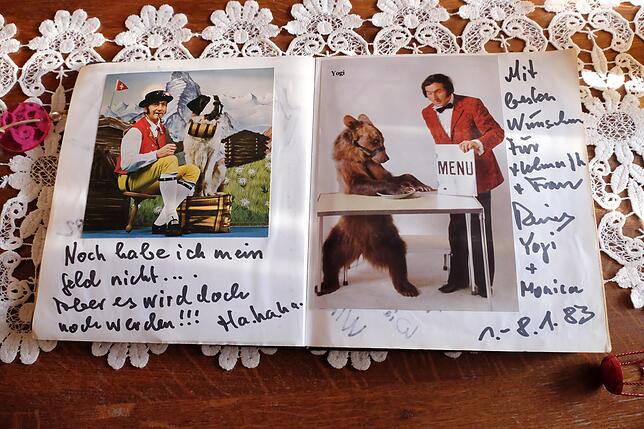 Noch habe ich mein
Geld nicht....
Aber es wird doch
noch werden!!! Ha.haha.
Yogi
MENU
Mit
besten
Wünschen
für
+ Frau
Yogi
+
Monica
1.-8.1.83